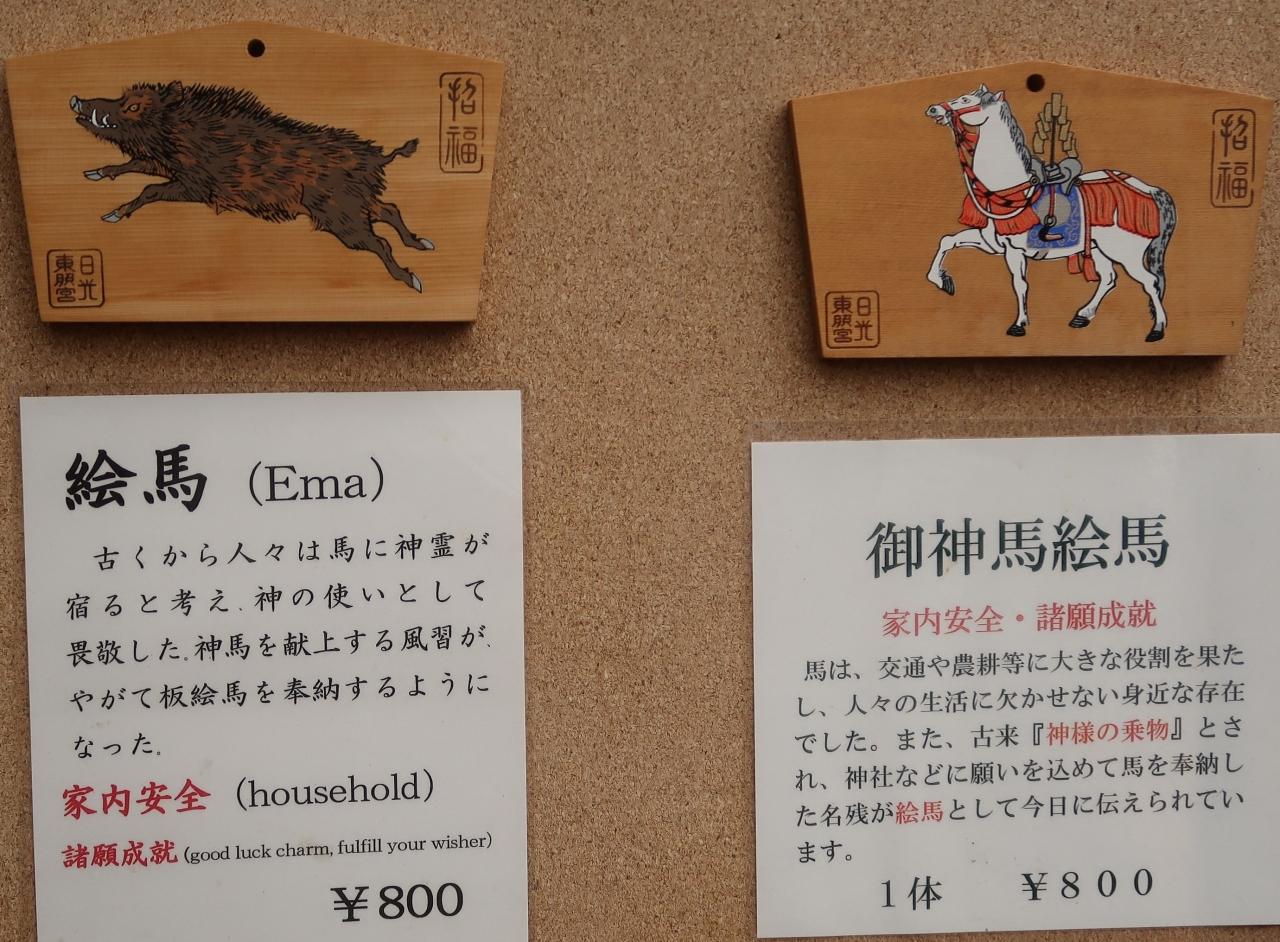 招福
日光
東照宮
絵馬 (Ema)
古くから人々は馬に神霊が
宿ると考え、神の使いとして
畏敬した。神馬を献上する風習が、
やがて板絵馬を奉納するように
なった。
家内安全 (household)
諸願成就 (good luck charm, fulfill your wisher)
￥800
招福
日光
東照宮
御神馬絵馬
家内安全・諸願成就
馬は、交通や農耕等に大きな役割を果た
し、人々の生活に欠かせない身近な存在
でした。また、古来『神様の乗物』とさ
れ、神社などに願いを込めて馬を奉納し
た名残が絵馬として今日に伝えられてい
ます。
1体 ￥８００